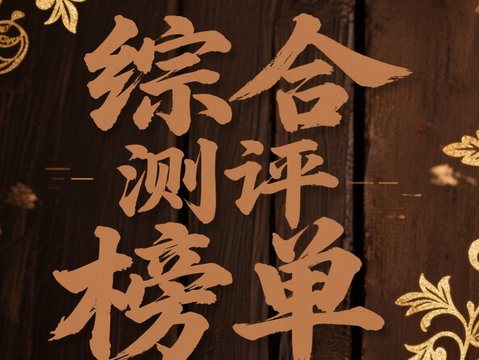 综合
测评
榜单